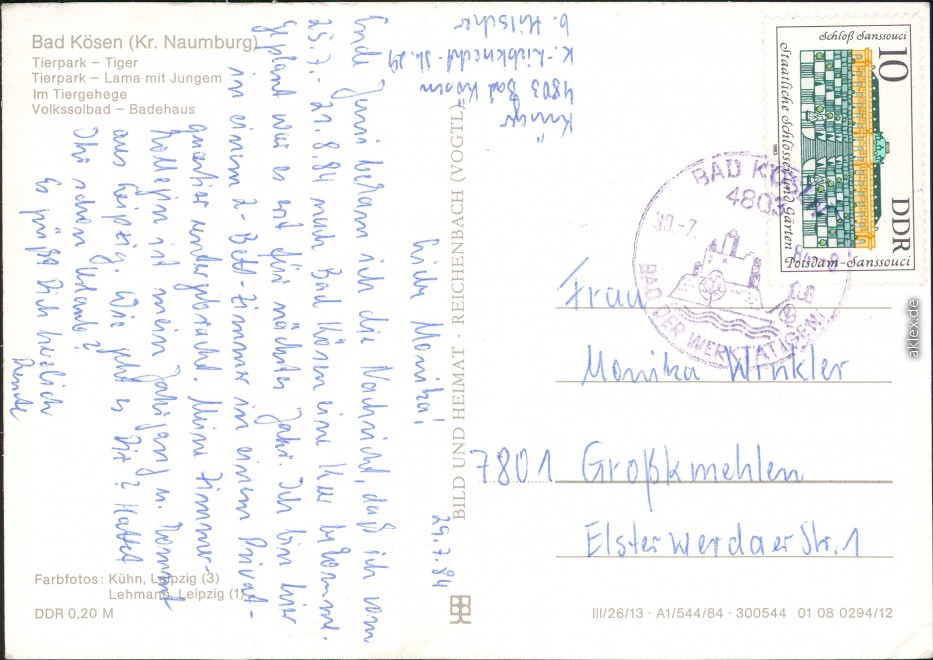 Bad Kösen (Kr. Naumburg)
Tierpark – Tiger
Tierpark – Lama mit Jungem
Im Tiergehege
Volkssolbad – Badehaus
29.7.84
Liebe Monika!
Ende Juni bekam ich die Nachricht, daß ich vom
25.7. - 21.8.84 nach Bad Kösen eine Kur bekomme.
Geplant war es erst für nächstes Jahr. Ich bin hier
in einem 2-Bett-Zimmer in einem Privat-
quartier untergebracht. Meine Zimmer-
kollegin ist mein Jahrgang u. kommt
aus Leipzig. Wie geht es Dir? Hattet
Ihr schon Urlaub?
Es grüßt Dich herzlich
Renate
b. Hitscher
K.-Liebknecht-Str. 29
4803 Bad Kösen
BILD UND HEIMAT · REICHENBACH (VOGTL)
Schloß Sanssouci
10
Staatliche Schlösser und Gärten
1983
DDR
Potsdam-Sanssouci
BAD KÖSEN
4803
30.-7. 84-8
BAD DER WERKTÄTIGEN!
Frau
Monika Winkler
7801 Großkmehlen
Elsterwerdaer Str. 1
Farbfotos: Kühn, Leipzig (3)
Lehmann, Leipzig (1)
DDR 0,20 M
III/26/13 · A1/544/84 · 300544 01 08 0294/12
aklex.de